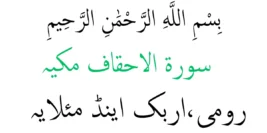 بِسْمِ اللَّهِ الرَّحْمَٰنِ الرَّحِيمِ
سورة الاحقاف مکیہ
رومی،اربک اینڈ مئلایہ